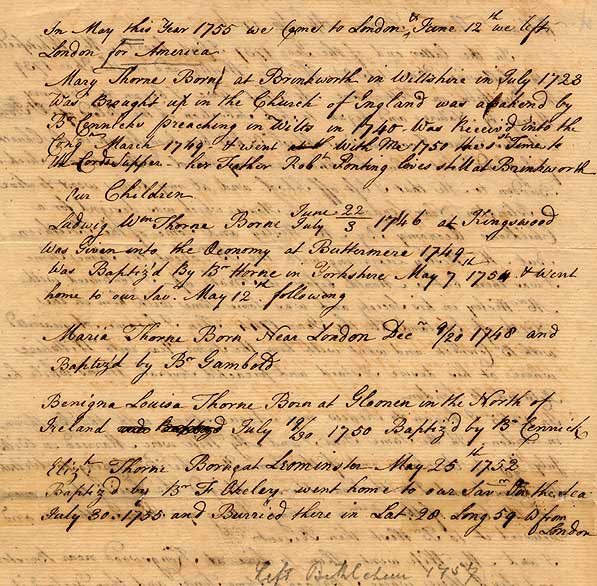 In May this Year 1755 we Come to London, & June 12th we left
London for America
Mary Thorne Borne at Brinkworth in Wiltshire in July 1723
Was Braught up in the Church of England was awakend by
Br Cennicks preaching in Wilts in 1740. Was Receiv'd into the
Cong March 1749 & went with Me 1750 the 1st Time to
the Lords Supper. her Father Robt Ponting lives still at Brinkworth
Our Children
Ludwig Wm Thorne Borne June 22/July 3 1746 at Kingswood
Was Given into the Oeconomy at Buttermere 1749
Was Baptiz'd By Br Horne in Yorkshire May 7th 1754 & Went
home to our Savr May 12th following
Maria Thorne Born Near London Decr 9/20 1748 and
Baptiz'd by Br Gambold
Benigna Louisa Thorne Born at Gloonen in the North of
Ireland July 19/30 1750 Baptiz'd by Br Cennick
Elizt Thorne Born at Leominster May 25th 1752
Baptiz'd by Br Fr Okeley went home to our Savr On the Sea
July 30. 1755 and Burried there in Lat 28 Long 59 W from
London
left Bethlehem 1757